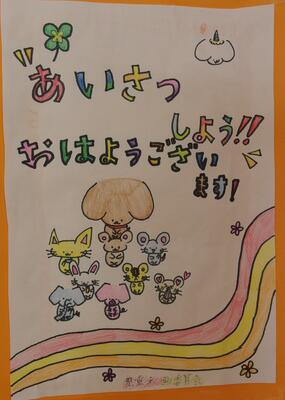 あいさつ
しよう!!
おはようござい
ます!